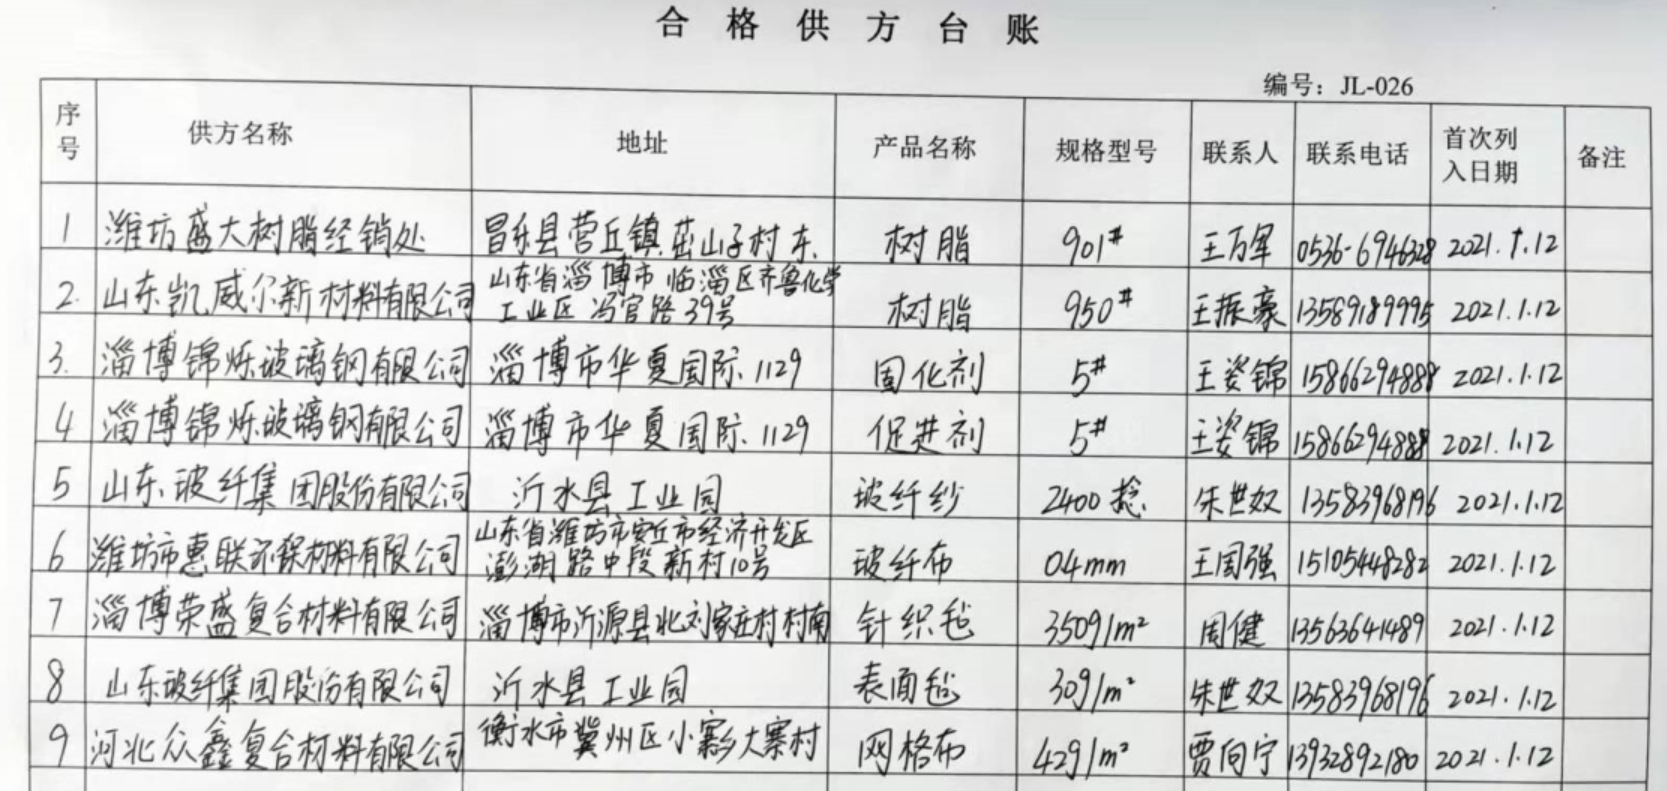 合格供方台账
编号：JL-026
序号 供方名称 地址 产品名称 规格型号 联系人 联系电话 首次列入日期 备注
1 潍坊盛大树脂经销处 昌乐县营丘镇崮山子村东 树脂 901# 王万军 0536-6946328 2021.1.12
2. 山东凯威尔新材料有限公司 山东省淄博市临淄区齐鲁化学工业区冯官路39号 树脂 950# 王振豪 13589189995 2021.1.12
3. 淄博锦烁玻璃钢有限公司 淄博市华夏国际1129 固化剂 5# 王姿锦 15866294888 2021.1.12
4 淄博锦烁玻璃钢有限公司 淄博市华夏国际1129 促进剂 5# 王姿锦 15866294888 2021.1.12
5 山东玻纤集团股份有限公司 沂水县工业园 玻纤纱 2400 朱世奴 13583968196 2021.1.12
6 潍坊市惠联环保材料有限公司 山东省潍坊市安丘市经济开发区澎湖路中段新村10号 玻纤布 04mm 王国强 15105448282 2021.1.12
7 淄博荣盛复合材料有限公司 淄博市沂源县北刘家庄村村南 针织毡 350g/m² 周健 13563641489 2021.1.12
8 山东玻纤集团股份有限公司 沂水县工业园 表面毡 30g/m² 朱世奴 13583968196 2021.1.12
9 河北众鑫复合材料有限公司 衡水市冀州区小寨乡大寨村 网格布 42g/m² 贾向宁 13932892180 2021.1.12